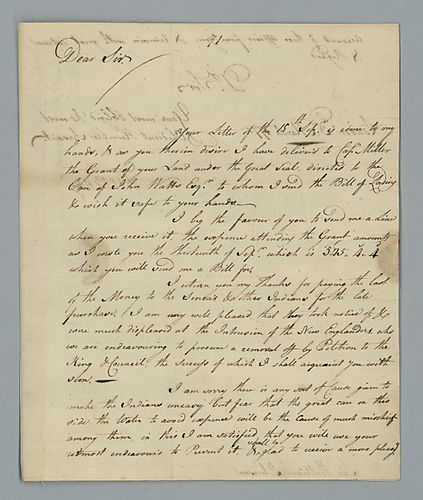 Dear Sir
Your Letter of the 15th Sepr. is come to my
hands, & as you therein desire I have deliver'd to Capt. Miller
the Grant of your Land under the Great Seal, directed to the
Care of John Watts Esqr. to whom I send the Bill of Lading
& wish it safe to your hands.—
I beg the favour of you to send me a Line
when you receive it. The expence attending the Grant amounts
as I wrote you the thirteenth of Sepr. which is 545. 4. 4
which you will send me a Bill for.
I return you my Thanks for paying the last
of the Money to the Seneca's & other Indians for the late
purchase. I am very well pleased that they took notice of, &
were much displeased at the Intrusion of the New Englanders, who
we are endeavouring to procure a removal off by Petition to the
King & Council, the Success of which I shall acquaint you with
soon.—
I am sorry there is any sort of Cause given to
make the Indians uneasy but fear that the great on this
side the Water to avoid expence will be the Cause of much mischief
among them, in this I am satisfied that you will use your
utmost endeavours to Prevent it, & shall be glad to receive a more pleas